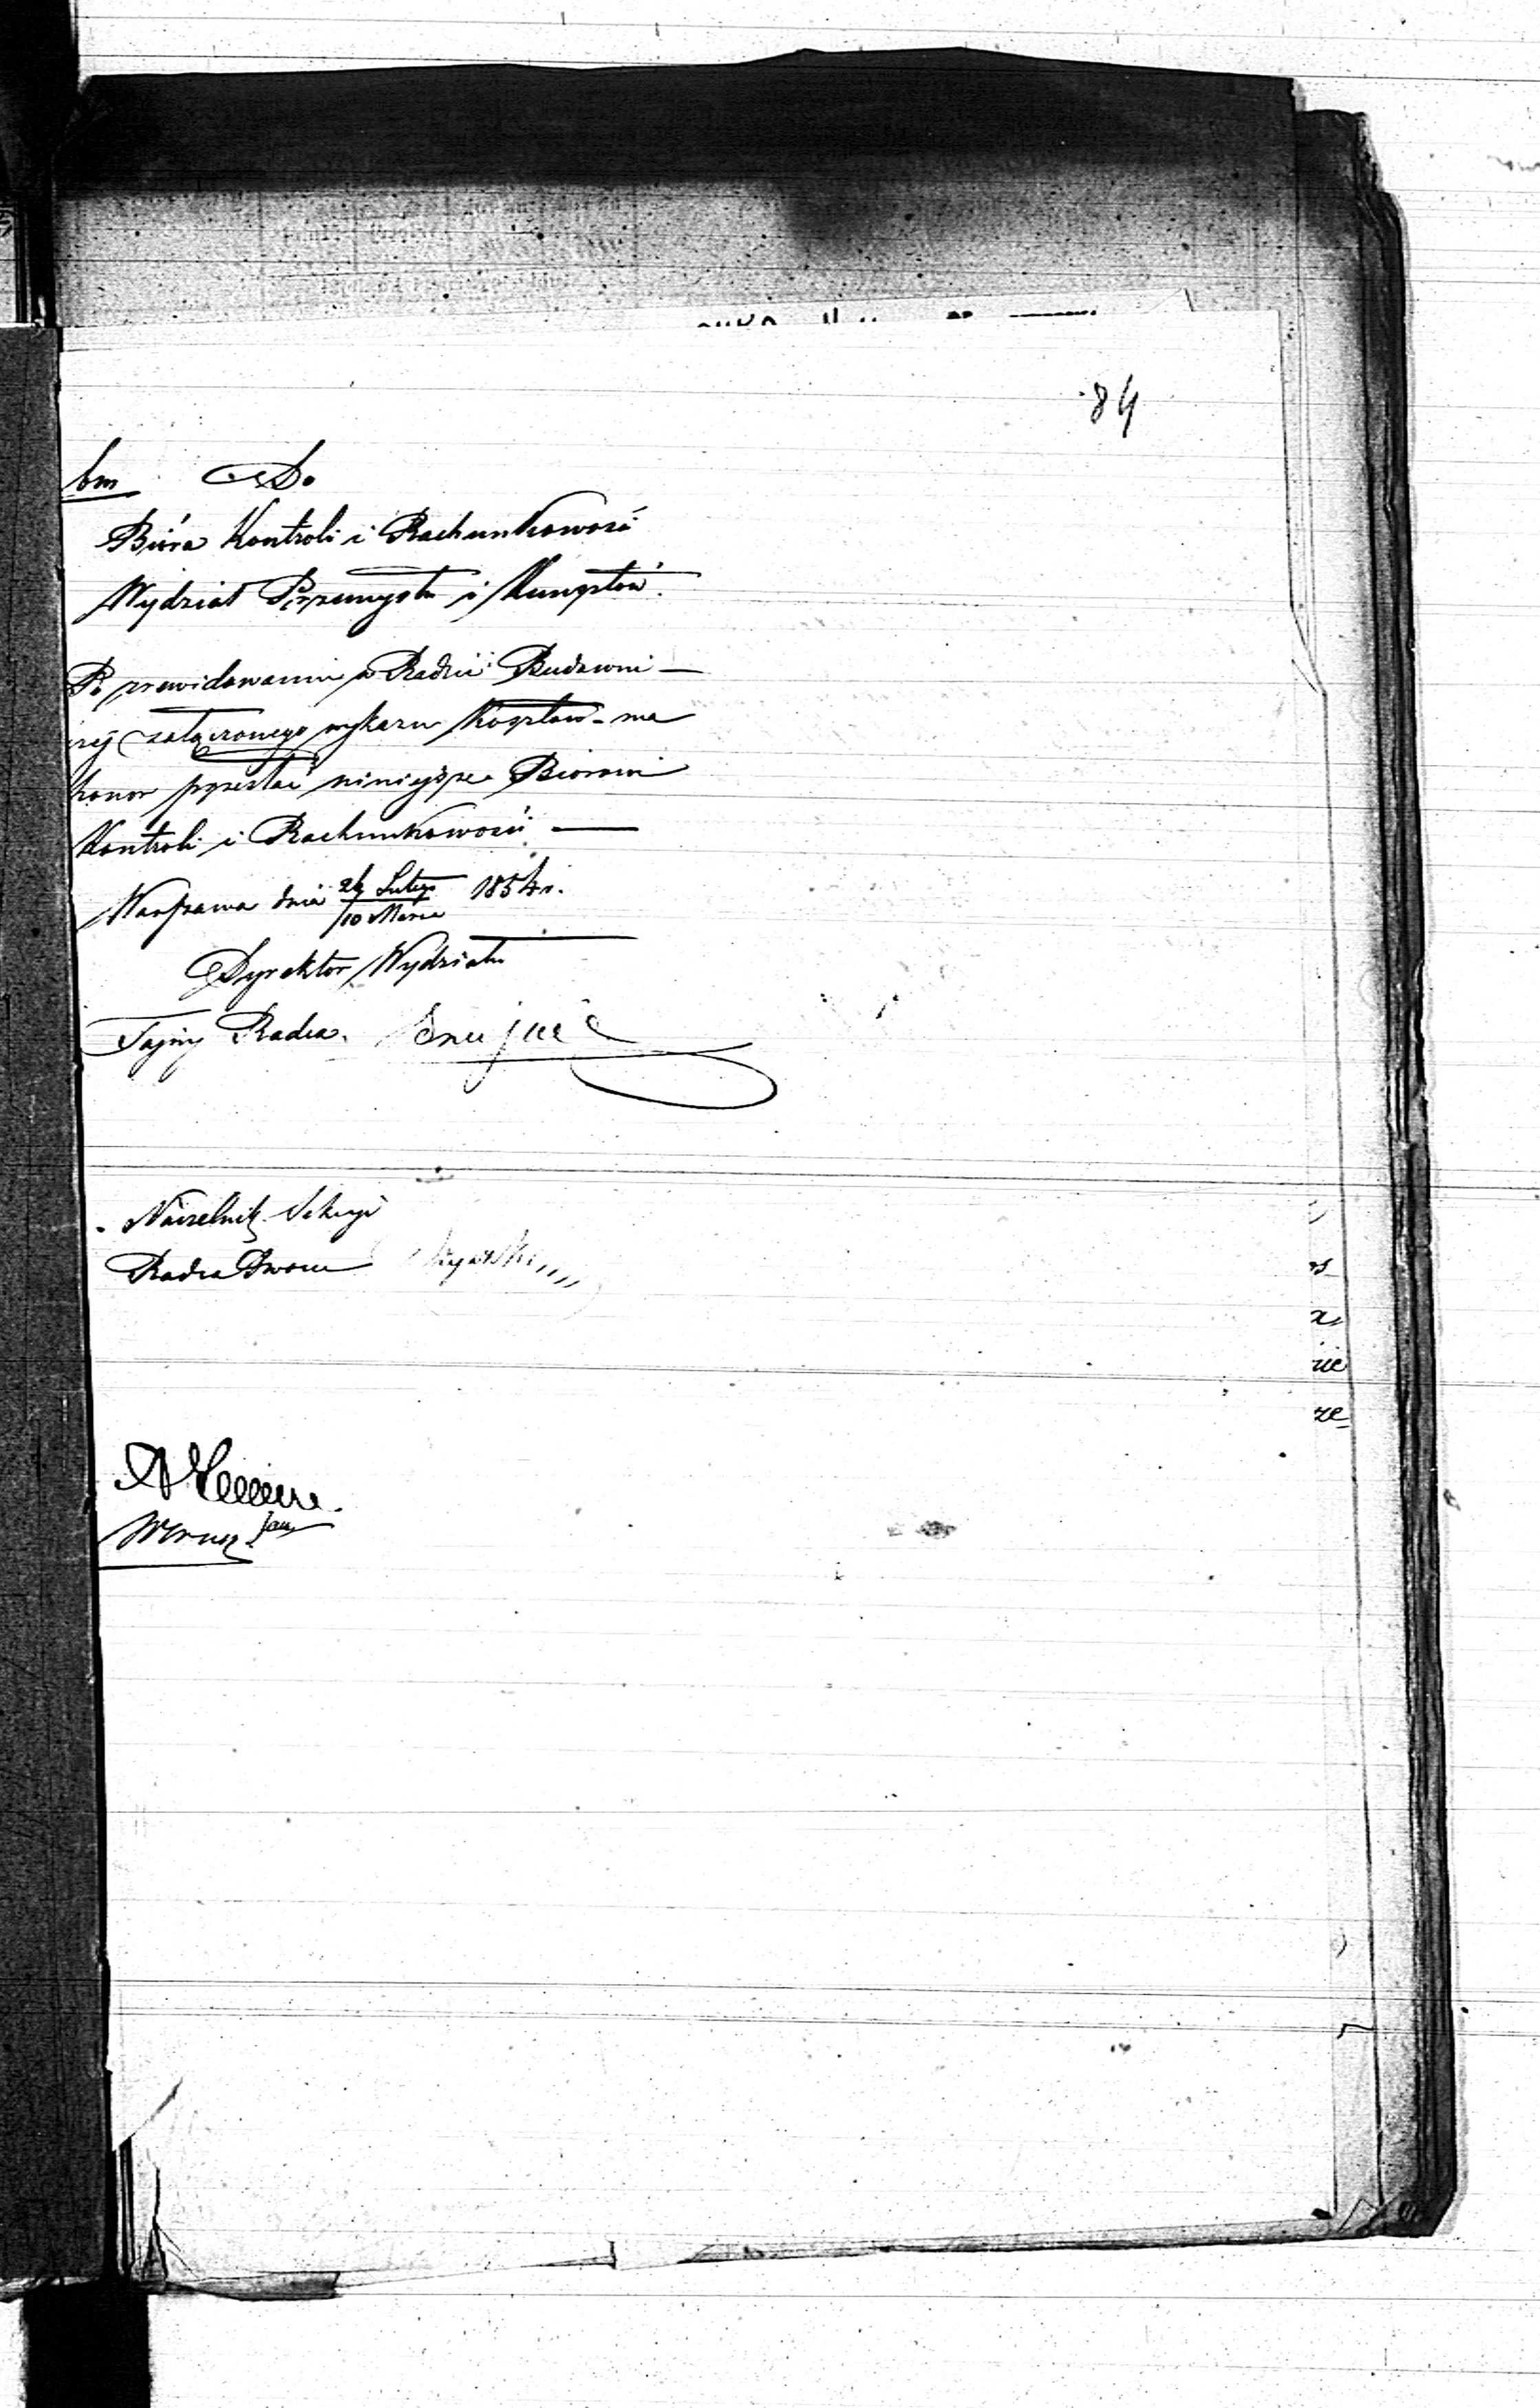 84
bm Do
Bióra Kontroli i Rachunkowości
Wydział Przemysłu i Kunsztów.
Po zrewidowaniu w Radzie Budowni-
czej załączonego wykazu kosztów - ma
honor przesłać niniejsze Biórowi
Kontroli i Rachunkowości —
Warszawa dnia 26 Lutego / 10 Marca 1854 r.
Dyrektor Wydziału
Tajny Radca.
Naczelnik Sekcyi
Radca Dworu